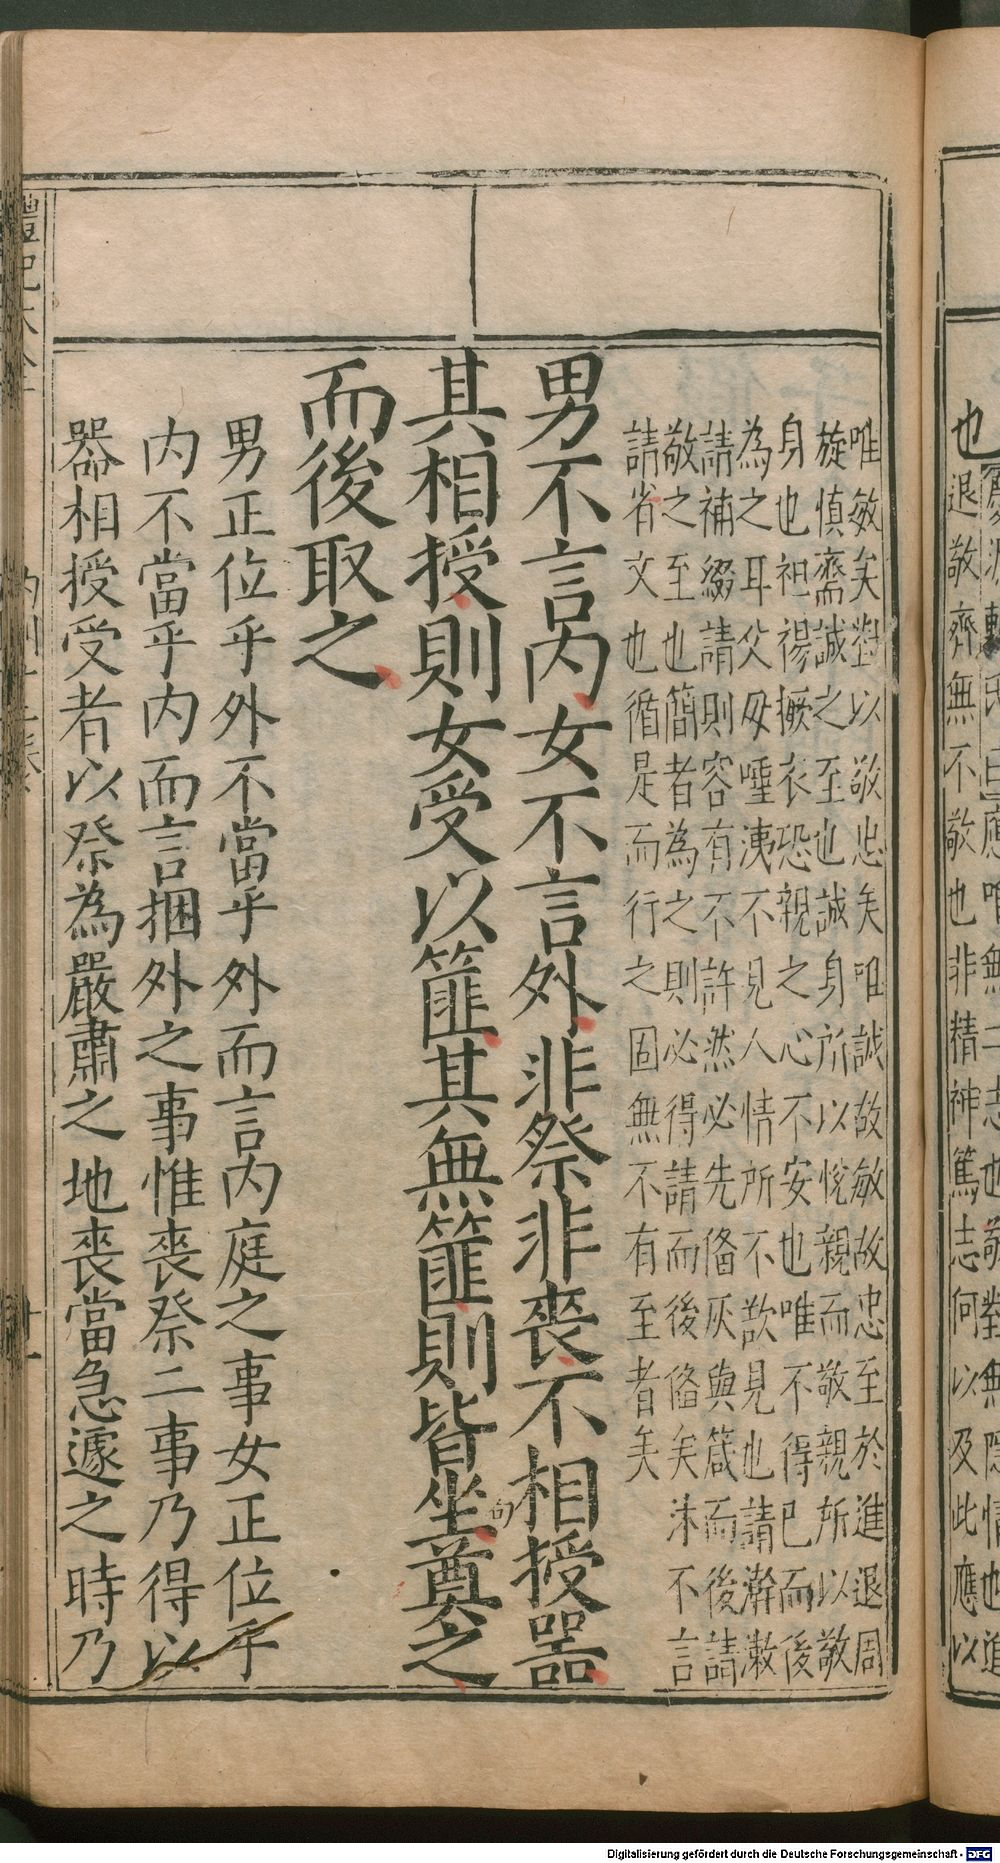 也退敬齊無不敬也非精神篤志何以及此應以
唯敏矣對以敬忠矣唯誠故敏故忠至於進退周
旋慎齋誠之至也誠身所以悅親而敬親所以敬
身也袒裼撅衣恐親之心不安也唯不得已而後
為之耳父母唾洟不見人情所不欲見也請澣漱
請補綴請則容有不許然必先俻灰與箴而後請
敬之至也簡者為之則必得請而後俻矣沐不言
請省文也循是而行之固無不有至者矣
男不言内女不言外非祭非喪不相授器
其相授則女受以篚其無篚則皆坐句奠之
而後取之
男正位乎外不當乎外而言内庭之事女正位乎
内不當乎内而言梱外之事惟喪祭二事乃得以
器相授受者以祭為嚴肅之地喪當急遽之時乃
禮記大全
内則
十一
Digitalisierung gefördert durch die Deutsche Forschungsgemeinschaft - DFG